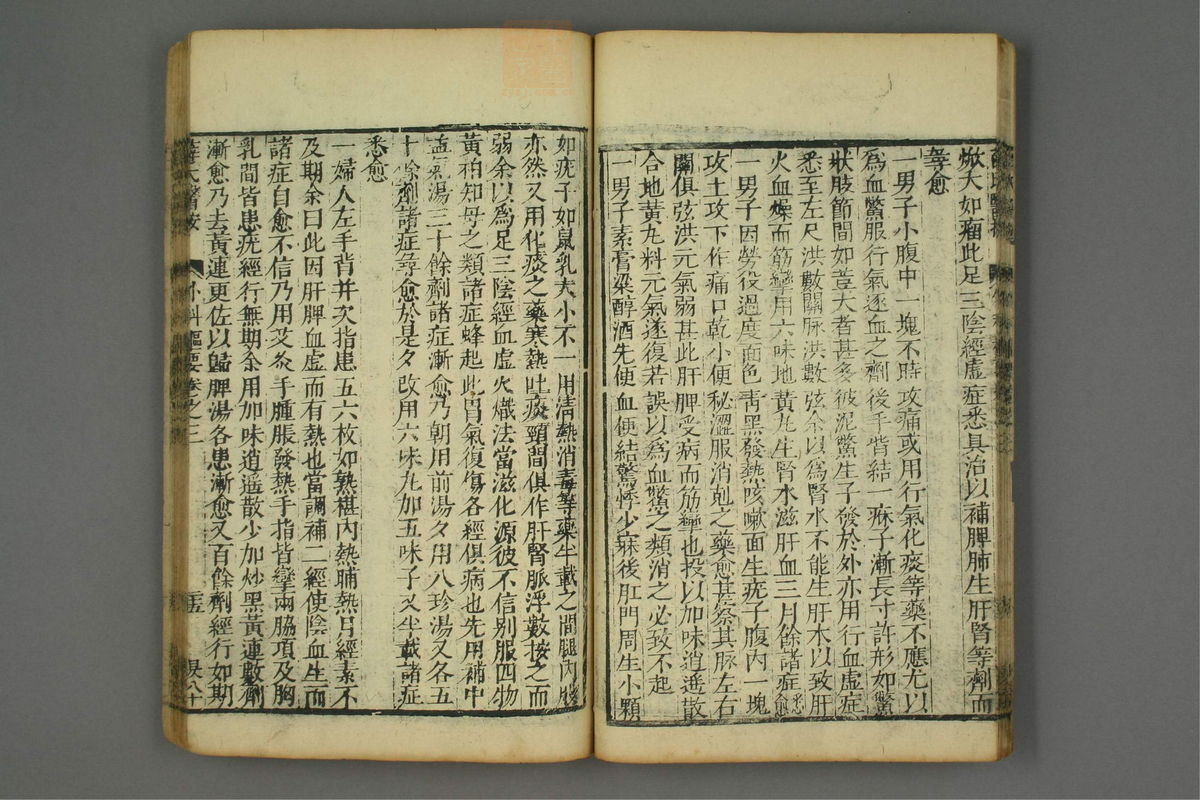 焮大如瘤此足三陰經虛症悉具治以補脾肺生肝腎等劑而
等愈
一男子小腹中一塊不時攻痛或用行氣化痰等藥不應尤以
為血鱉服行氣逐血之劑後手背結一㾦子漸長寸許形如鱉
狀肢節間如荳大者甚多彼泥鱉生子發於外亦用行血虛症
悉至左尺洪數關脉洪數弦余以為腎水不能生肝木以致肝
火血燥而筋攣用六味地黃丸生腎水滋肝血三月餘諸症悉愈
一男子因勞役過度面色青黑發熱咳嗽面生疣子腹內一塊
攻上攻下作痛口乾小便秘澀服消剋之藥愈甚察其脉左右
關俱弦洪元氣弱甚此肝脾受病而筋攣也投以加味逍遙散
合地黃丸料元氣遂復若誤以為血鱉之類消之必致不起
一男子素膏粱醇酒先便血便結驚悸少寐後肛門周生小顆
如疣子如鼠乳大小不一用清熱消毒等藥半載之間腿內股
亦然又用化痰之藥寒熱吐痰頸間俱作肝腎脈浮數按之而
弱余以為足三陰經血虛火熾法當滋化源彼不信別服四物
黃柏知母之類諸症蜂起此胃氣復傷各經俱病也先用補中
益氣湯三十餘劑諸症漸愈乃朝用前湯夕用八珍湯又各五
十餘劑諸症尋愈於是夕改用六味丸加五味子又半載諸症
悉愈
一婦人左手背并次指患五六枚如熟椹內熱晡熱月經素不
及期余曰此因肝脾血虛而有熱也當調補二經使陰血生而
諸症自愈不信乃用艾灸手腫脹發熱手指皆攣兩脇項及胸
乳間皆患疣經行無期余用加味逍遙散少加炒黑黃連數劑
漸愈乃去黃連更佐以歸脾湯各患漸愈又百餘劑經行如期
薛氏醫按
外科樞要卷之三